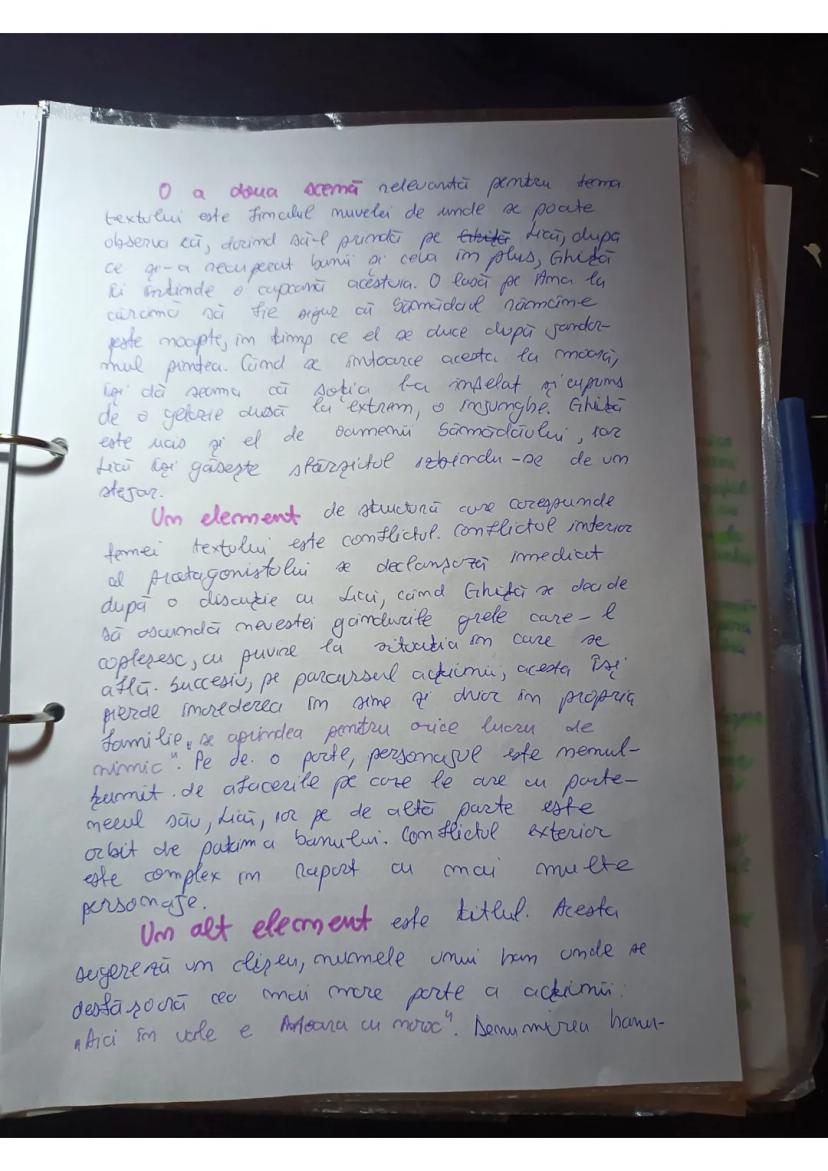 O a doua scenă relevantă pentru tema
textului este finalul nuvelei de unde se poate
observa că, dorind să-l prindă pe Ghiță Lică, după
ce și-a recuperat banii și ceva în plus, Ghiță
îi întinde o capcană acestuia. O lasă pe Ana la
cârciumă să fie sigur că Sămădăul rămâne
peste noapte, în timp ce el se duce după jandar-
mul Pintea. Când se întoarce acesta la moară,
își dă seama că soția l-a înșelat și cuprins
de o gelozie dusă la extrem, o înjunghe. Ghiță
este ucis și el de oamenii Sămădăului, iar
Lică își găsește sfârșitul izbindu-se de un
stejar.
Un element de structură care corespunde
temei textului este conflictul. Conflictul interior
al protagonistului se declanșază imediat
după o discuție cu Lică, când Ghiță se decide
să ascundă nevestei gândurile grele care-l
copleșesc, cu privire la situația în care se
află. Succesiv, pe parcursul acțiunii, acesta își
pierde încrederea în sine și chiar în propria
familie, „se aprindea pentru orice lucru de
nimic". Pe de o parte, personajul este nemul-
țumit de afacerile pe care le are cu parte-
nerul său, Lică, iar pe de altă parte este
orbit de patima banului. Conflictul exterior
este complex în raport cu mai multe
personaje.
Un alt element este titlul. Acesta
sugerează un clișeu, numele unui han unde se
desfășoară cea mai mare parte a acțiunii:
„Aici în vale e Moara cu noroc". Denumirea hanu-